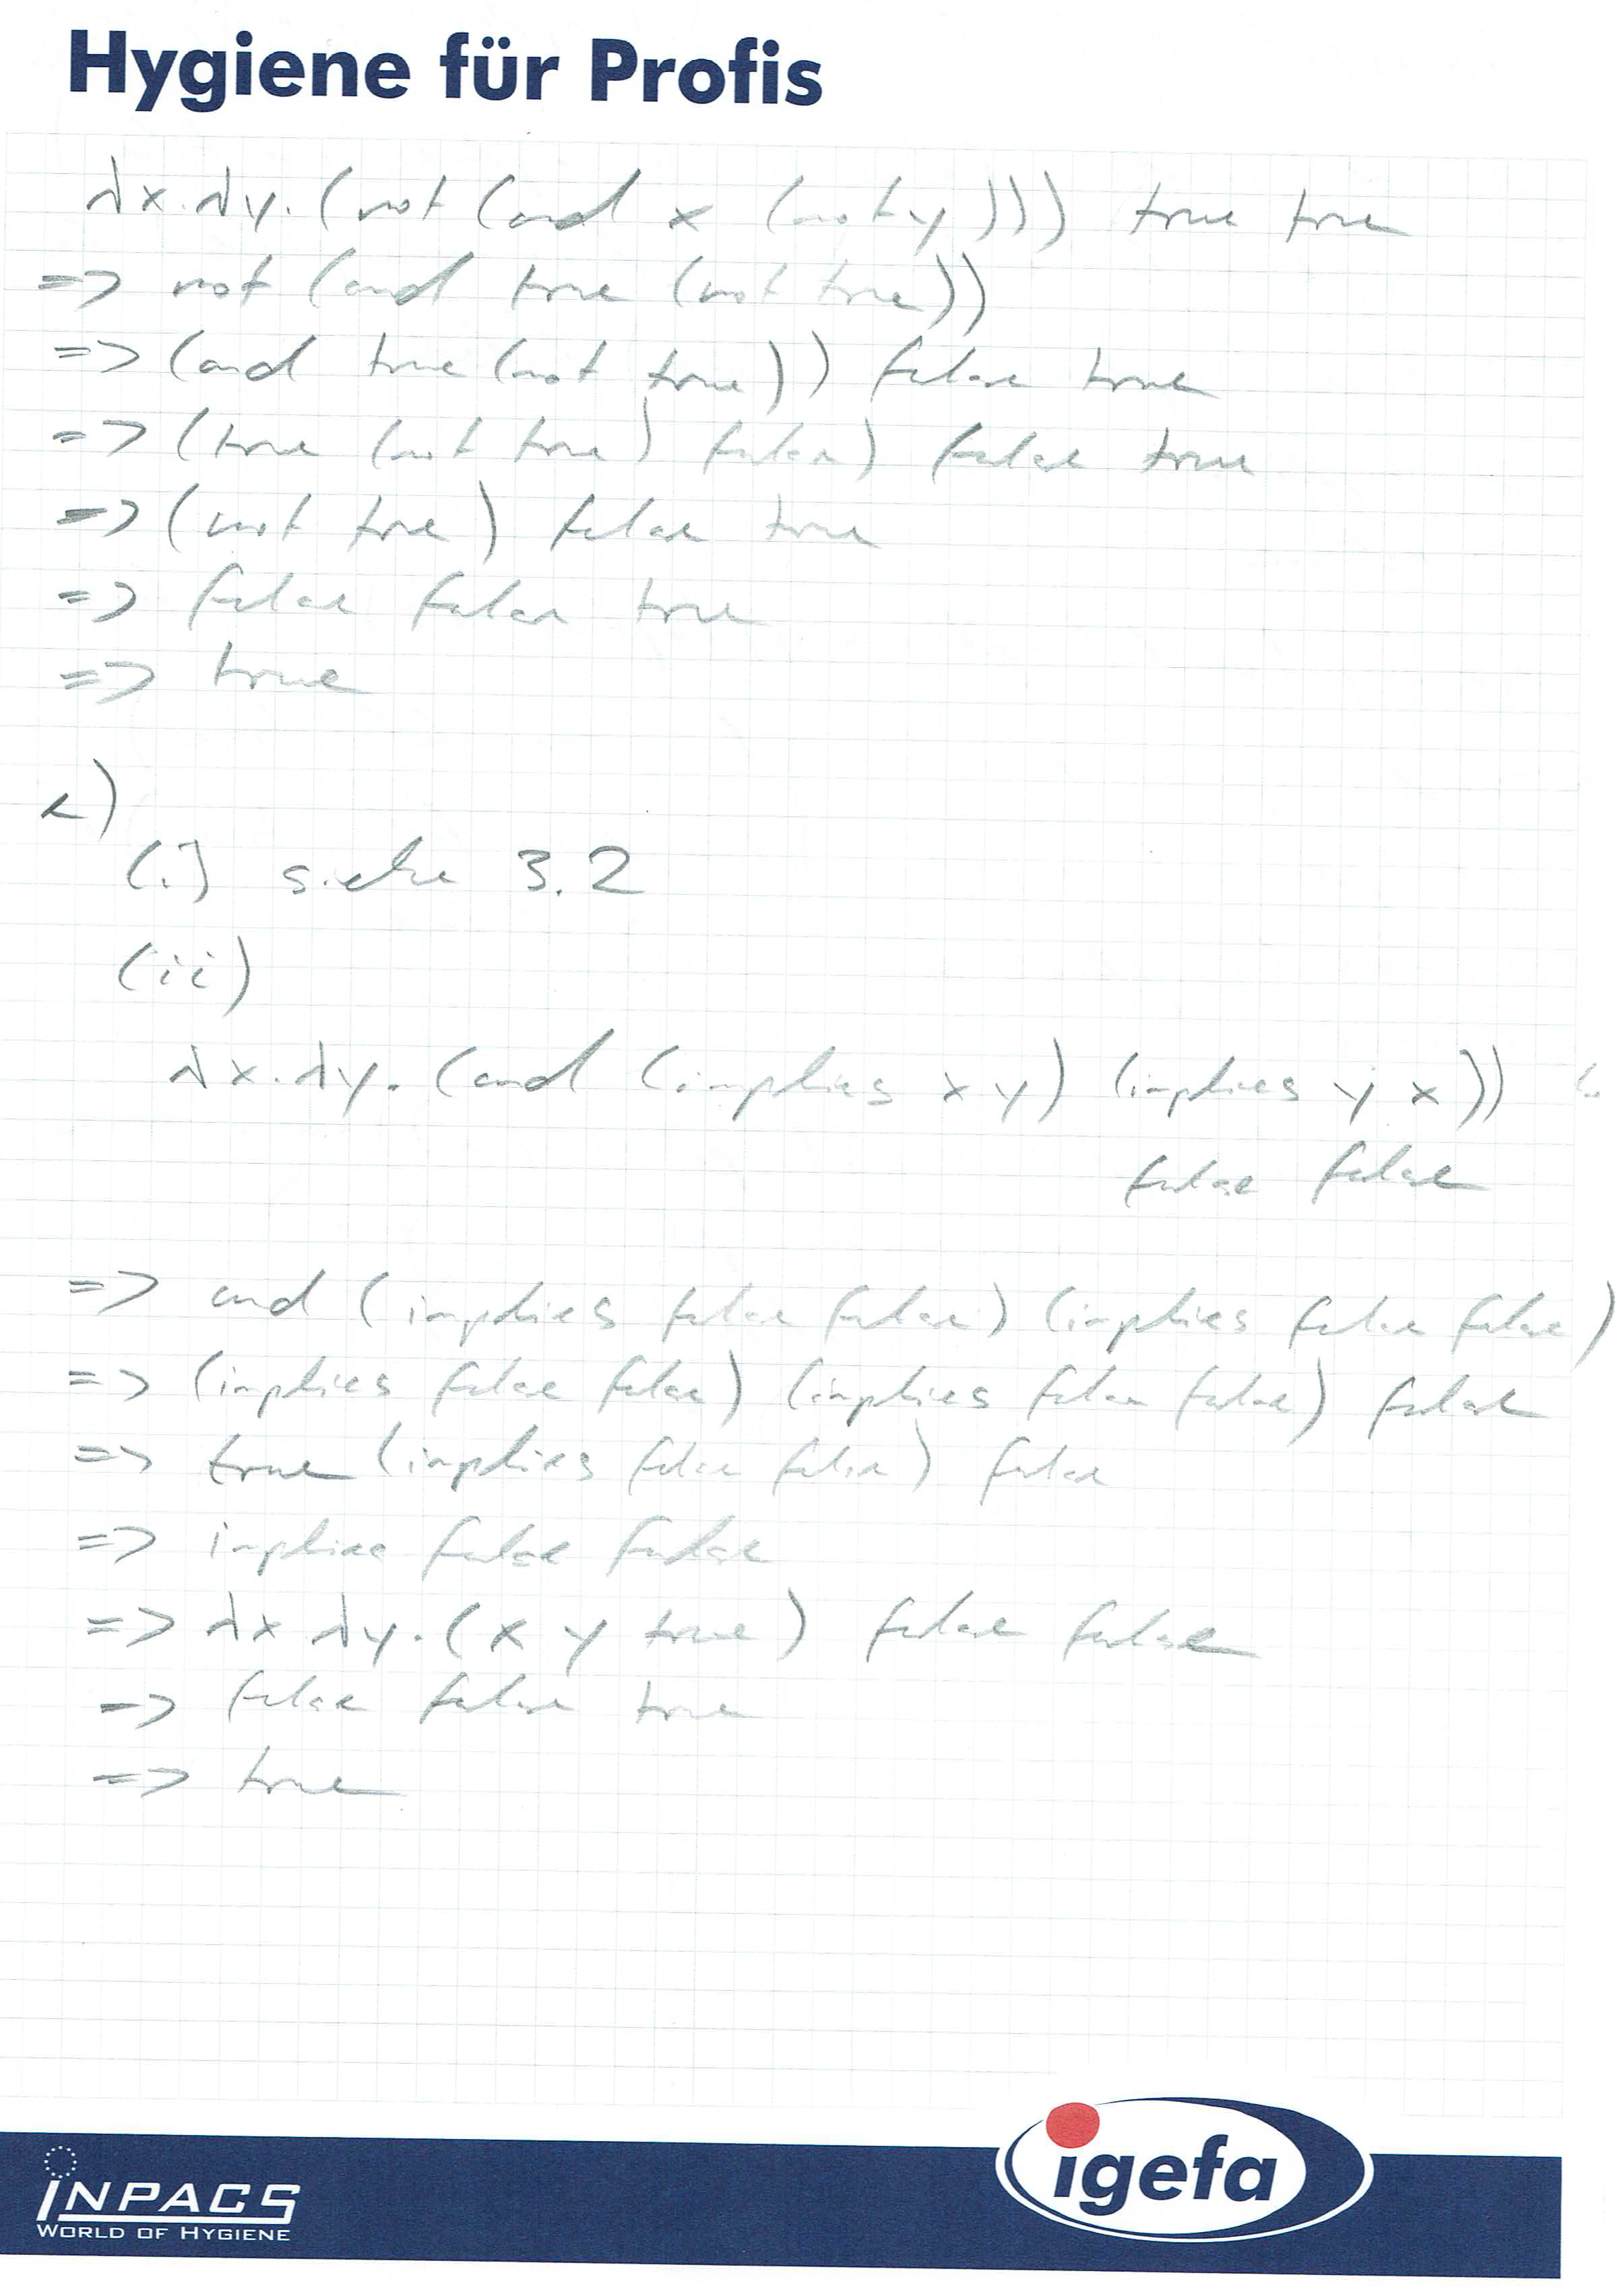 Hygiene für Profis
λx.λy.(not (and x (not y))) true true
=> not (and true (not true))
=> (and true (not true)) false true
=> (true (not true) false) false true
=> (not true) false true
=> false false true
=> true
c)
(i) siehe 3.2
(ii)
λx.λy.(and (implies x y) (implies y x))
false false
=> and (implies false false) (implies false false)
=> (implies false false) (implies false false) false
=> true (implies false false) false
=> implies false false
=> λx λy.(x y true) false false
=> false false true
=> true
INPACS
WORLD OF HYGIENE
igefa